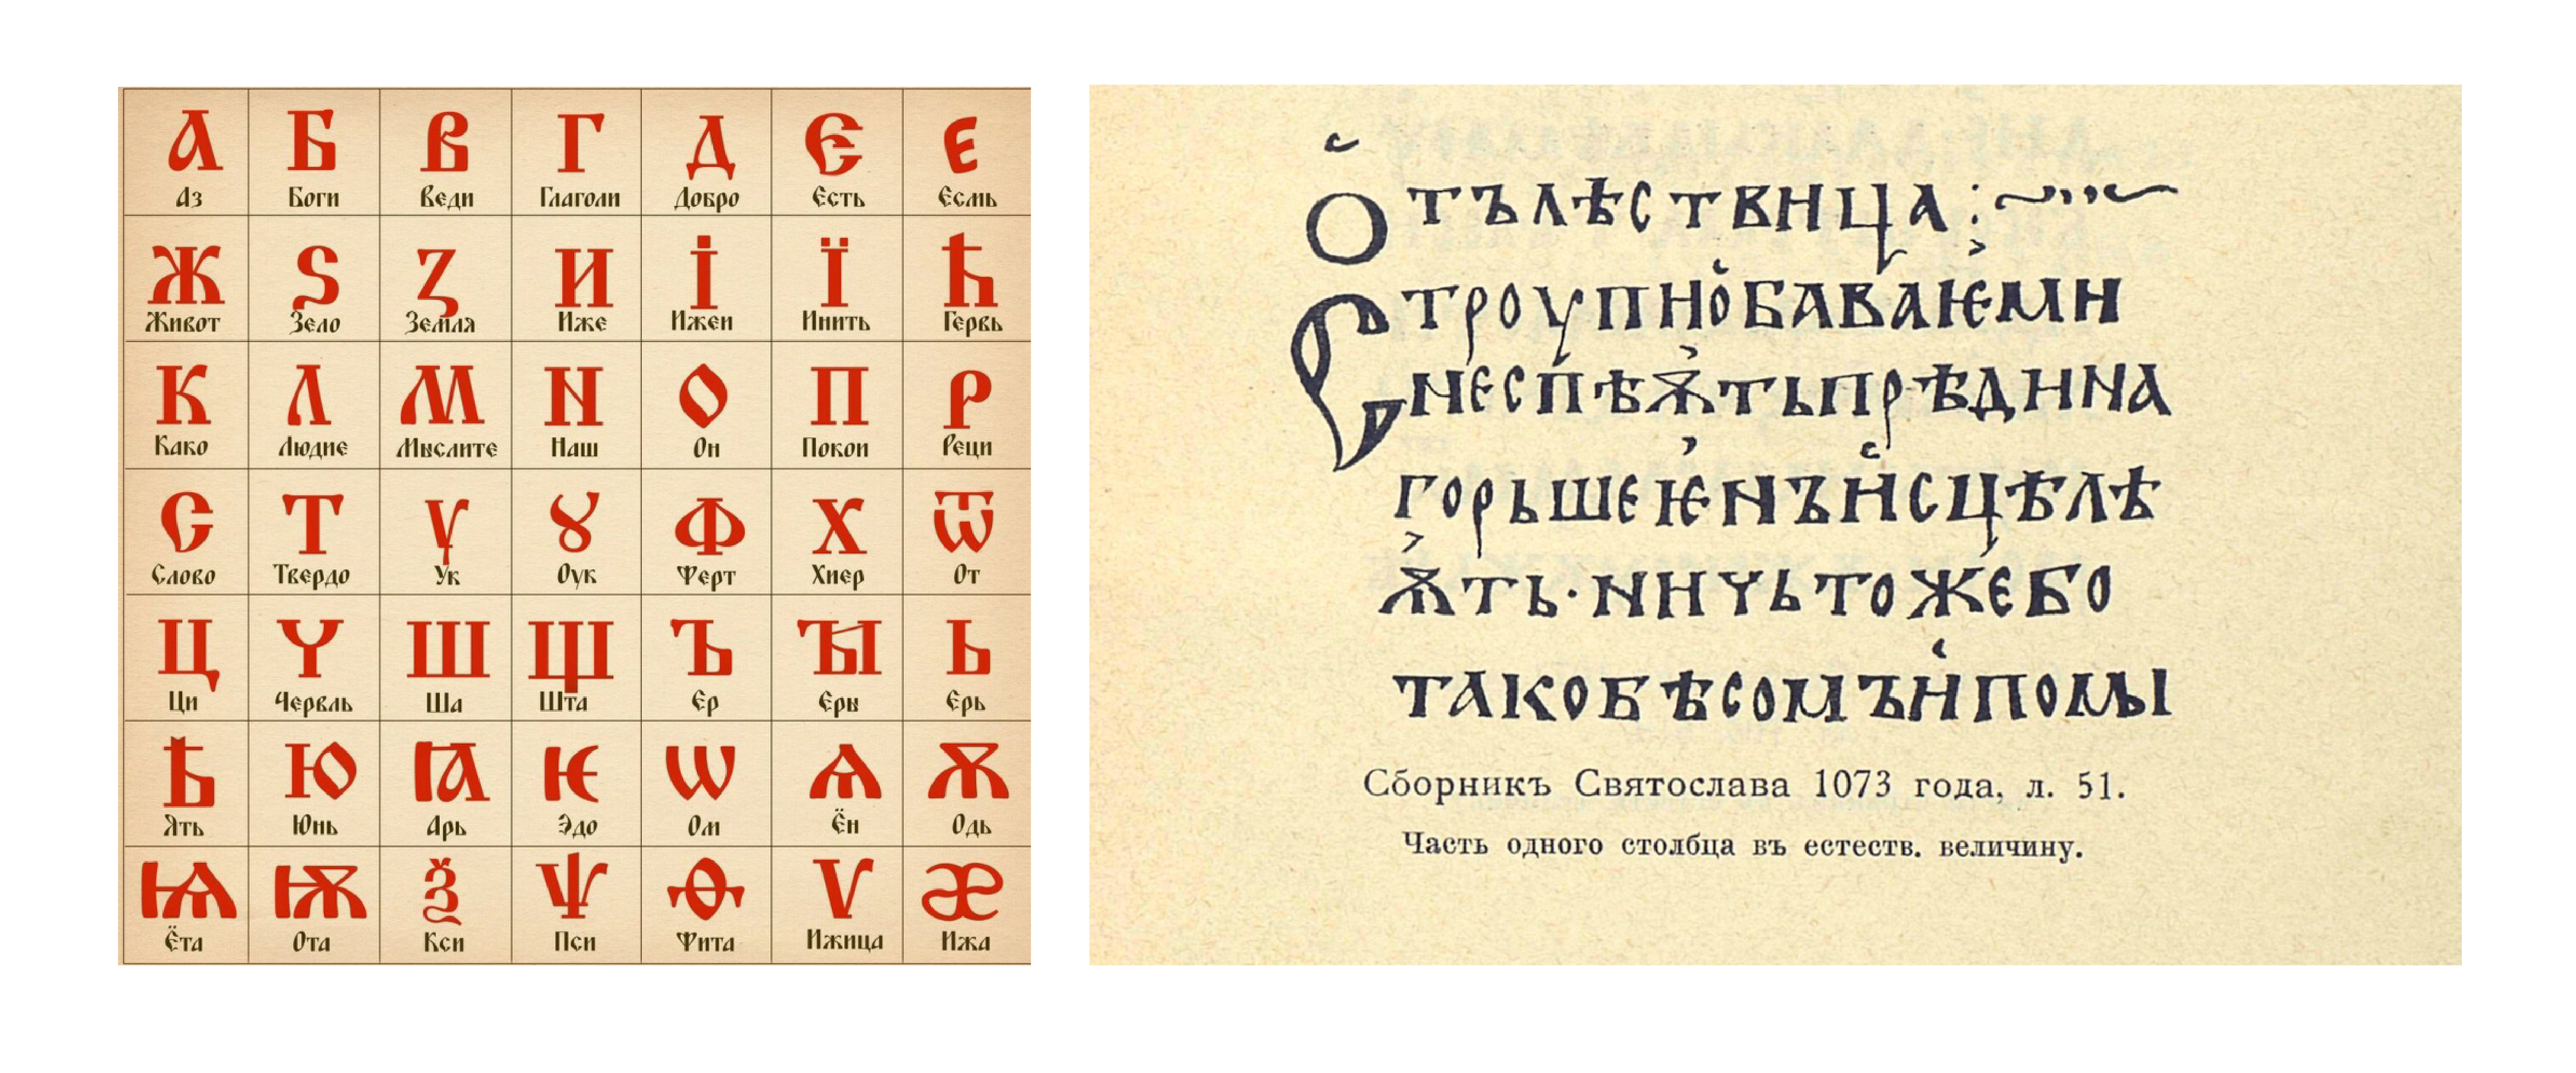 А Б В Г Д Є Е
Аз Боги Веди Глаголи Добро Єсть Єсмь
Ж Ѕ Ꙁ И І Ї Ћ
Живот Зело Земля Иже Ижеи Инить Гервь
К Л М N О П Р
Како Людие Мыслите Наш Он Покои Реци
С Т Ѵ Ꙋ Ф Х Ѿ
Слово Твердо Ук Оук Ферт Хиер От
Ц Ч Ш Щ Ъ Ꙑ Ь
Ци Червль Ша Шта Єр Єры Єрь
Ѣ Ю Ꙗ Ѥ Ѡ Ѧ Ѫ
Ять Юнь Арь Эдо Ом Ён Одь
Ѩ Ѭ Ѯ Ѱ Ѳ Ѵ Æ
Ёта Ота Кси Пси Фита Ижица Ижа
ОТЪЛѢСТВНЦА:~
СТРОУПНОБАВАѤМН
NЕСПѢѪТЬПРѢДННА
ГОРЬШЕѤNЪНСЦѢЛѢ
ѪТЬ·NНЧЬТОЖЕБО
ТАКОБѢСОМЪНПОМЫ
Сборникъ Святослава 1073 года, л. 51.
Часть одного столбца въ естеств. величину.